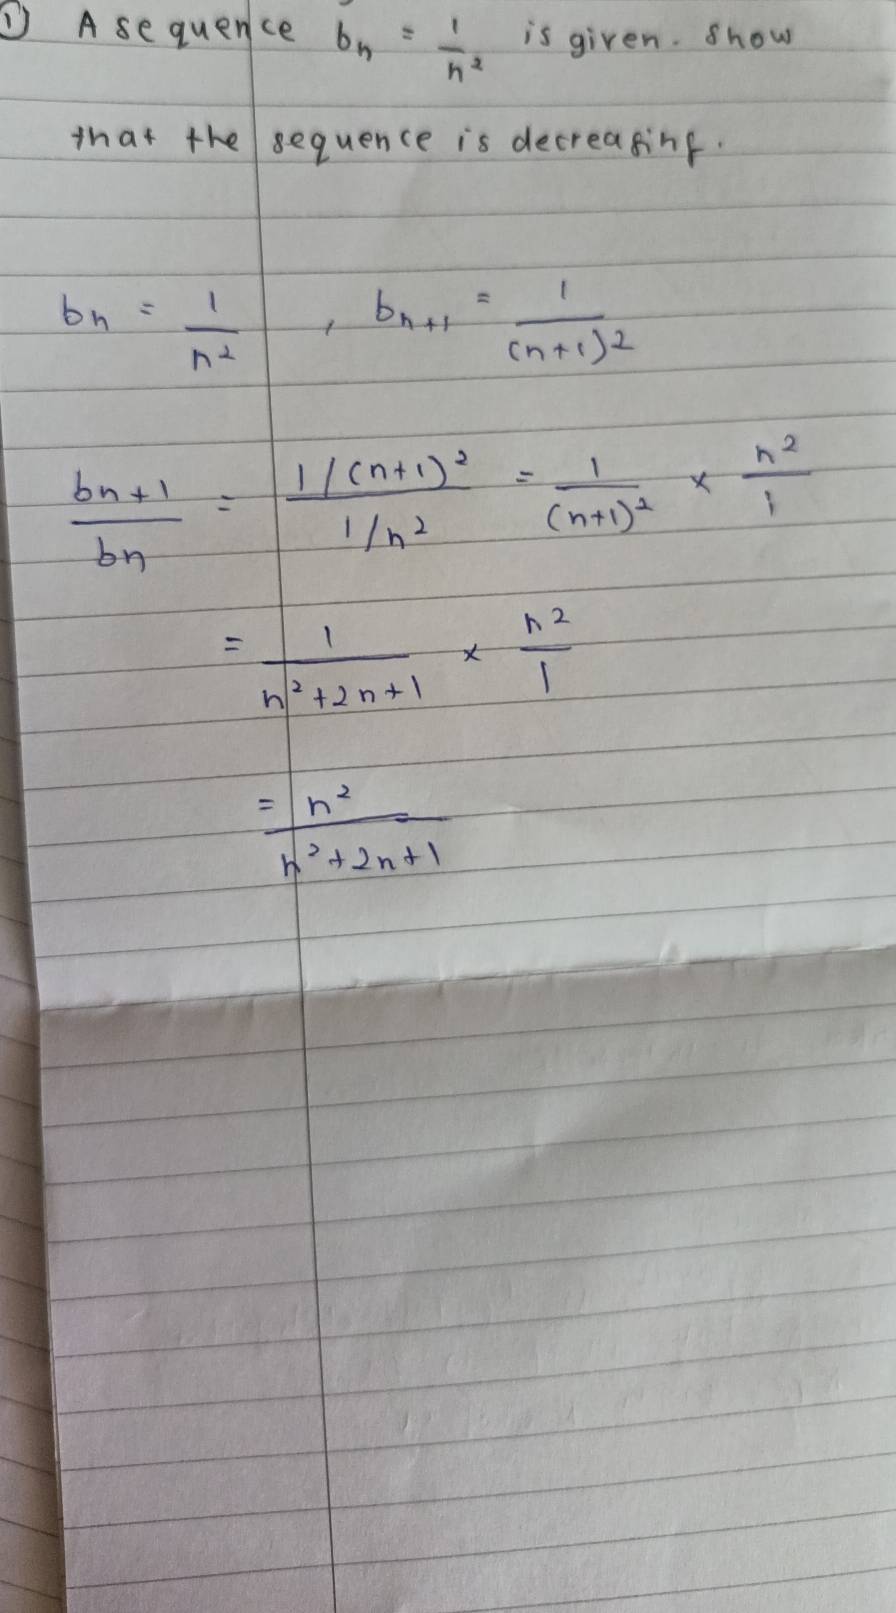 ① A sequence bn = 1/n² is given. Show
that the sequence is decreasing.
bn = 1/n² , bn+1 = 1/(n+1)²
bn+1/bn = (1/(n+1)²)/(1/n²) = 1/(n+1)² × n²/1
= 1/(n²+2n+1) × n²/1
= n²/(n²+2n+1)